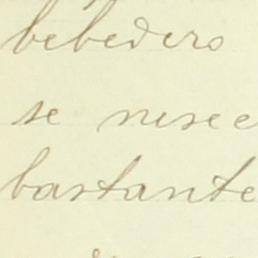 bebedero
se nesece
bastante